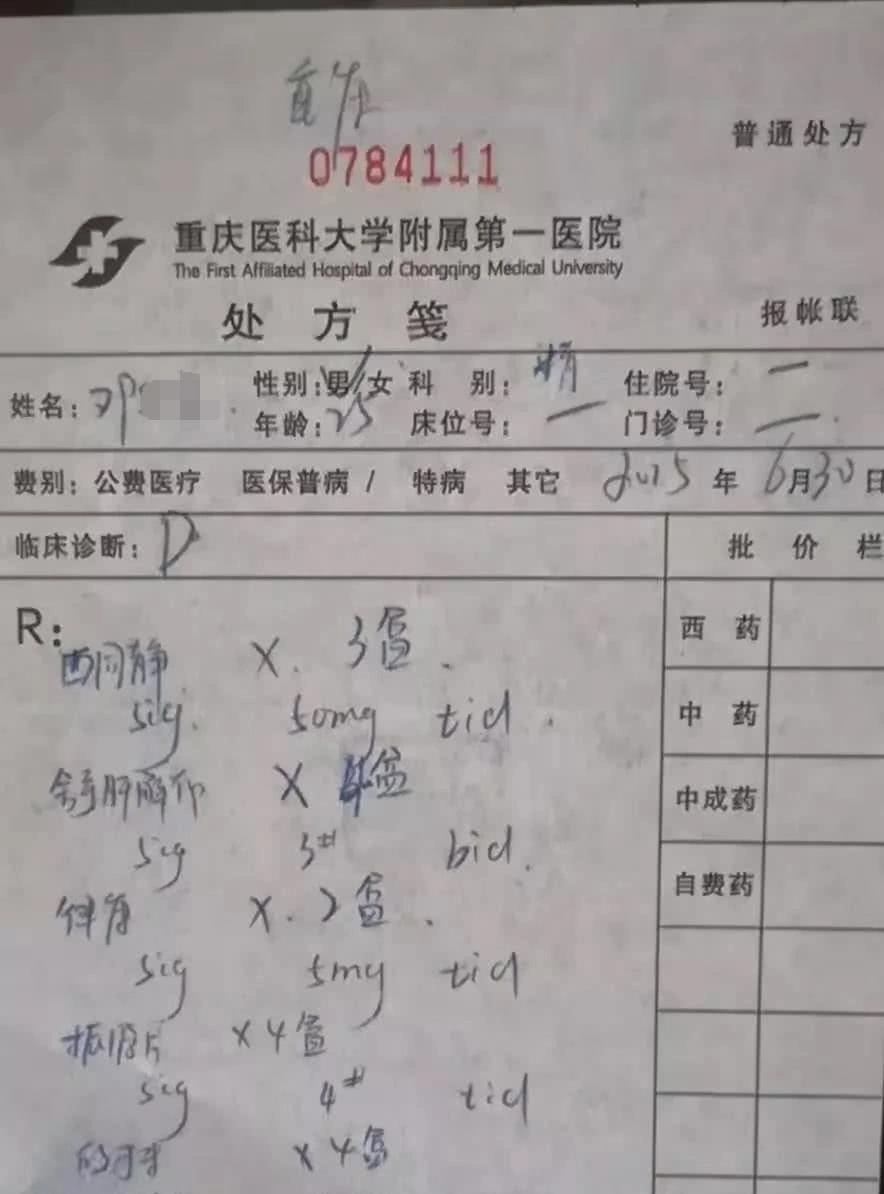 0784111
普通处方
重庆医科大学附属第一医院
The First Affiliated Hospital of Chongqing Medical University
处方笺
报帐联
姓名：邓 性别：男/女 科别：精 住院号：一
年龄：25 床位号：一 门诊号：一
费别：公费医疗 医保普病 / 特病 其它 2015年6月30日
临床诊断：D 批价栏
R：
西同静 × . 3盒 .
sig. 50mg tid .
舒肝解郁 × 4盒
sig 3# bid.
× . 2盒 .
sig 5mg tid
×4盒
sig 4# tid
×4盒
西药
中药
中成药
自费药